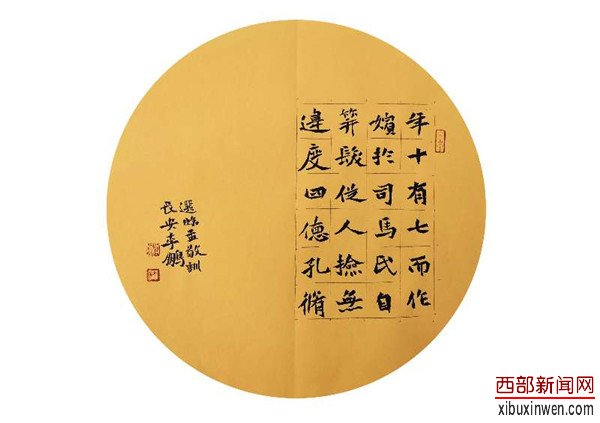 年十有七而作
嬪扵司馬氏自
笄髮從人撿無
違度四德孔脩
選臨孟敬訓
長安李鵬
西部新闻网
xibuxinwen.com